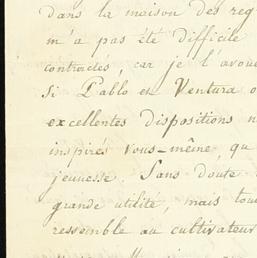 dans la maison des reg
m'a pas été difficile
contractés, car je l'avoue
Si Pablo et Ventura o
excellentes dispositions n
inspirés vous-même, qu
jeunesse. Sans doute
grande utilité, mais tou
ressemble au cultivateur